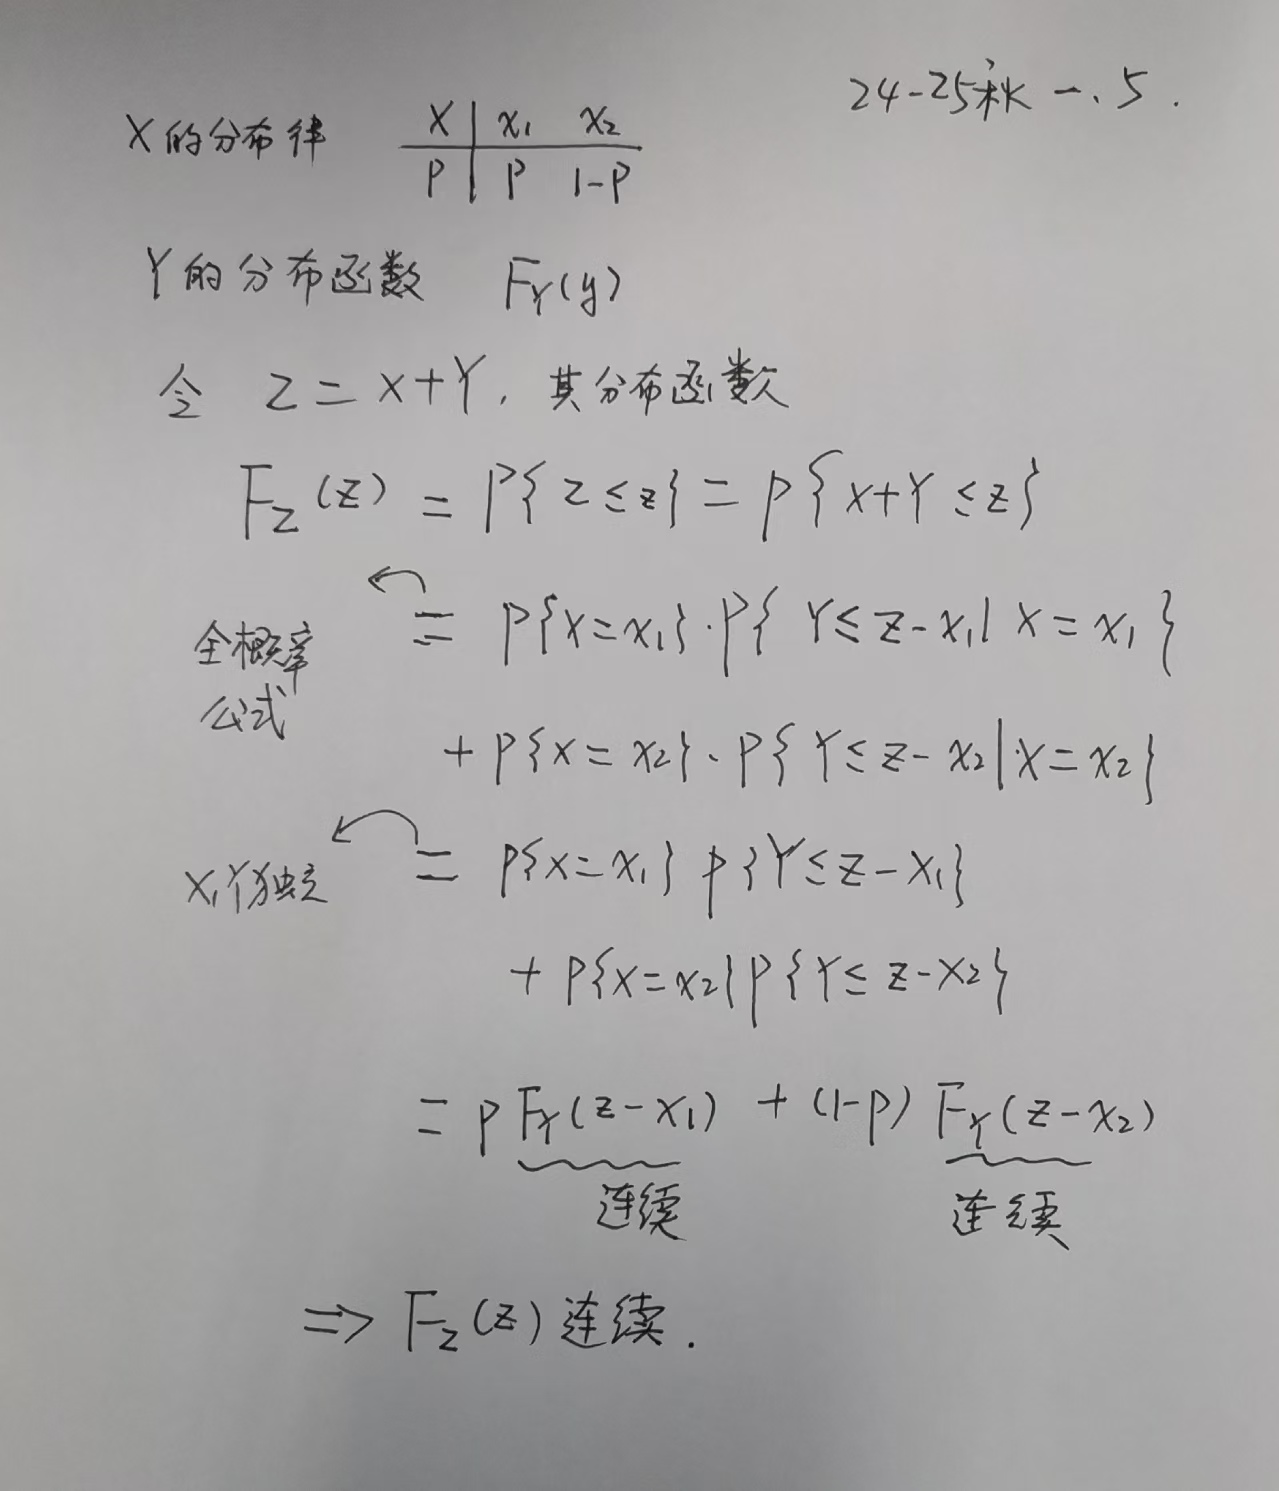 24-25秋 一.5.
X的分布律 X | x₁ x₂
P | P 1-P
Y的分布函数 F_Y(y)
令 Z=X+Y, 其分布函数
F_Z(z) = P{Z≤z} = P{X+Y≤z}
= P{X=x₁}·P{Y≤z-x₁|X=x₁}
全概率
公式
+ P{X=x₂}·P{Y≤z-x₂|X=x₂}
X,Y独立 = P{X=x₁}P{Y≤z-x₁}
+ P{X=x₂}P{Y≤z-x₂}
= pF_Y(z-x₁) + (1-p)F_Y(z-x₂)
连续 连续
⇒ F_Z(z)连续.